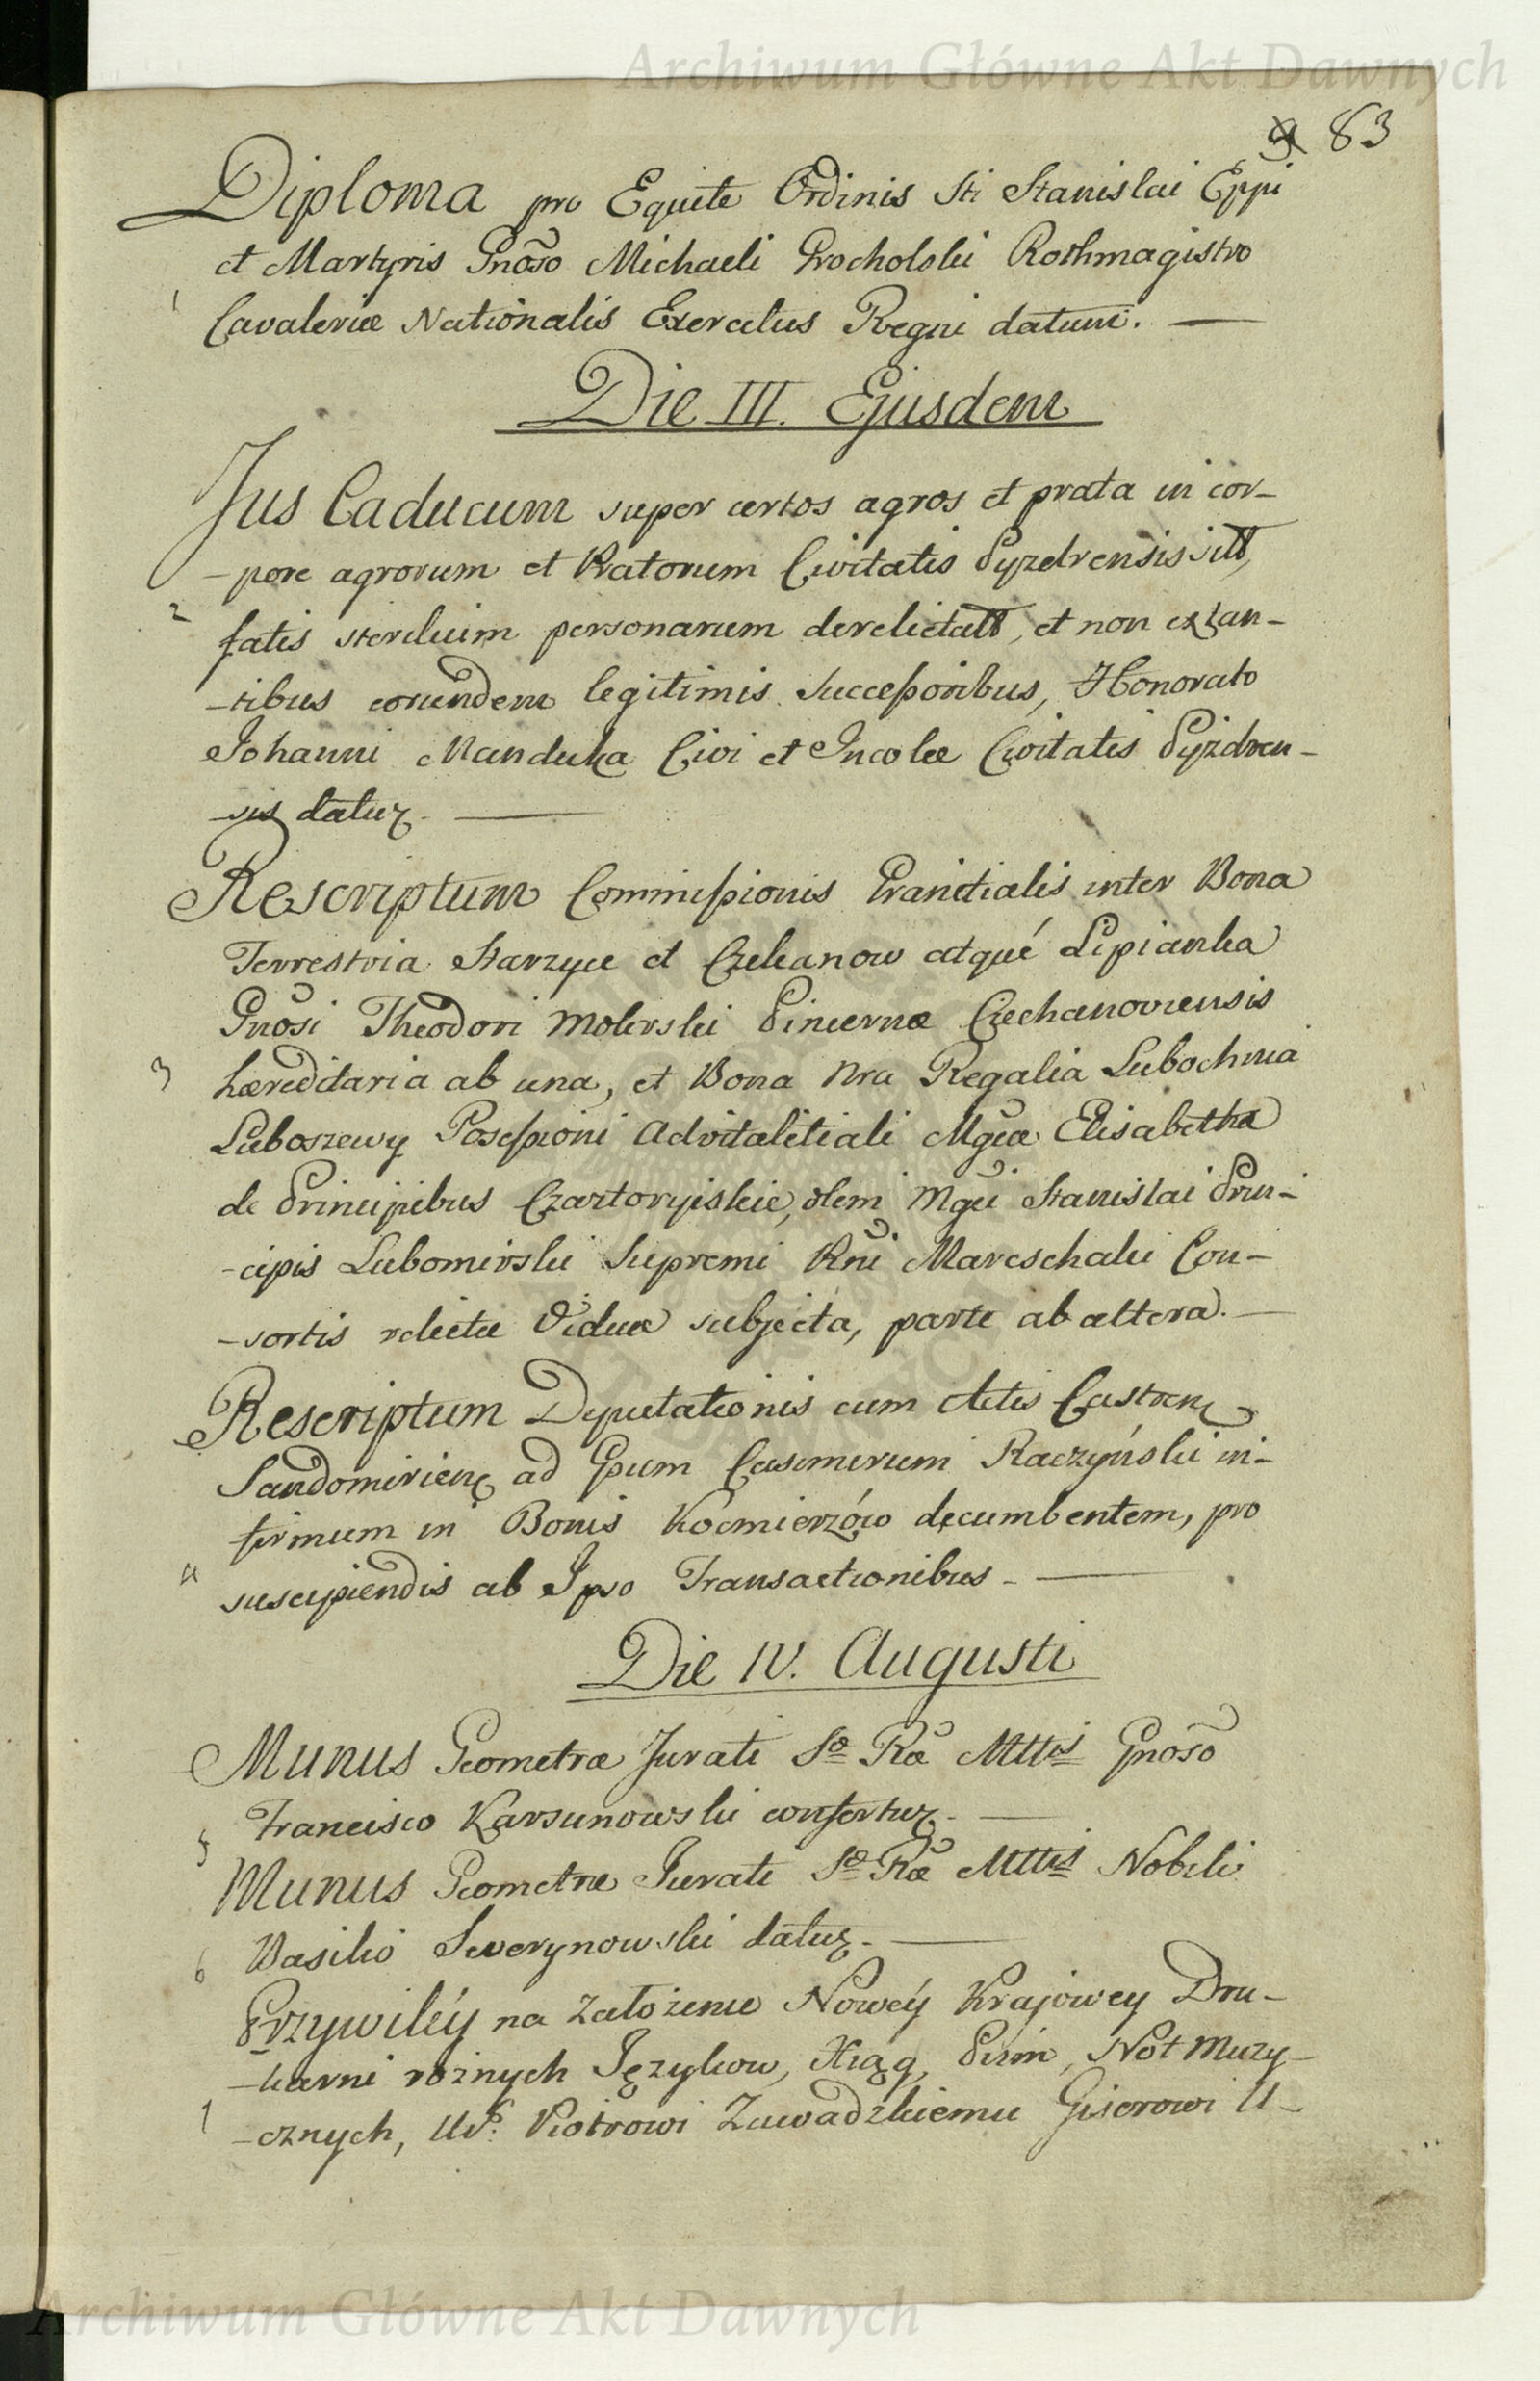 Archiwum Główne Akt Dawnych
83
Diploma pro Equite Ordinis Sti Stanislai Eppi
et Martyris Gnoso Michaeli Grocholski Rothmagistro
1 Cavaleriæ Nationalis Exercitus Regni datum. —
Die III. Ejusdem
Jus Caducum super certos agros et prata in cor-
-pore agrorum et Pratorum Civitatis Pyzdrensis sitt,
2 fatis sterilium personarum derelictatt, et non extan-
-tibus eorundem legitimis Successoribus, Honorato
Johanni Manduka Civi et Incolæ Civitatis Pyzdren-
-sis datur. —
Rescriptum Commissionis Granitialis inter Bona
Terrestria Starzyce et Czekanow atqué Lipianka
Gnosi Theodori Molerski Pincernæ Ciechanoviensis
3 hæreditaria ab una, et Bona Nra Regalia Lubochnia
Luboszewy Possessioni Advitalitiali Mgcæ Elisabethæ
de Principibus Czartoryiskie, olim Mgci Stanislai Prin-
-cipis Lubomirski Supremi Rni Mareschalci Con-
-sortis relictæ Viduæ subjecta, parte ab altera. —
Rescriptum Deputationis cum Actis Castren
Sandomirien ad Gsum Casimirum Raczyński in-
firmum in Bonis Kocmierzów decumbentem, pro
4 suscipiendis ab Ipso Transactionibus. —
Die IV. Augusti
Munus Geometræ Jurati Sæ Ræ Mttis Gnoso
Francisco Karsunowski confertur. —
5
Munus Geometræ Jurati Sæ Ræ Mttis Nobili
6 Basilio Severynowski datur. —
Przywiléy na Założenie Nowéy Krajowey Dru-
-karni rożnych Językow, Xiąg, Pism, Not Muzy-
7 -cznych, Ur: Piotrowi Zawadzkiemu Giserowi U-
Archiwum Główne Akt Dawnych